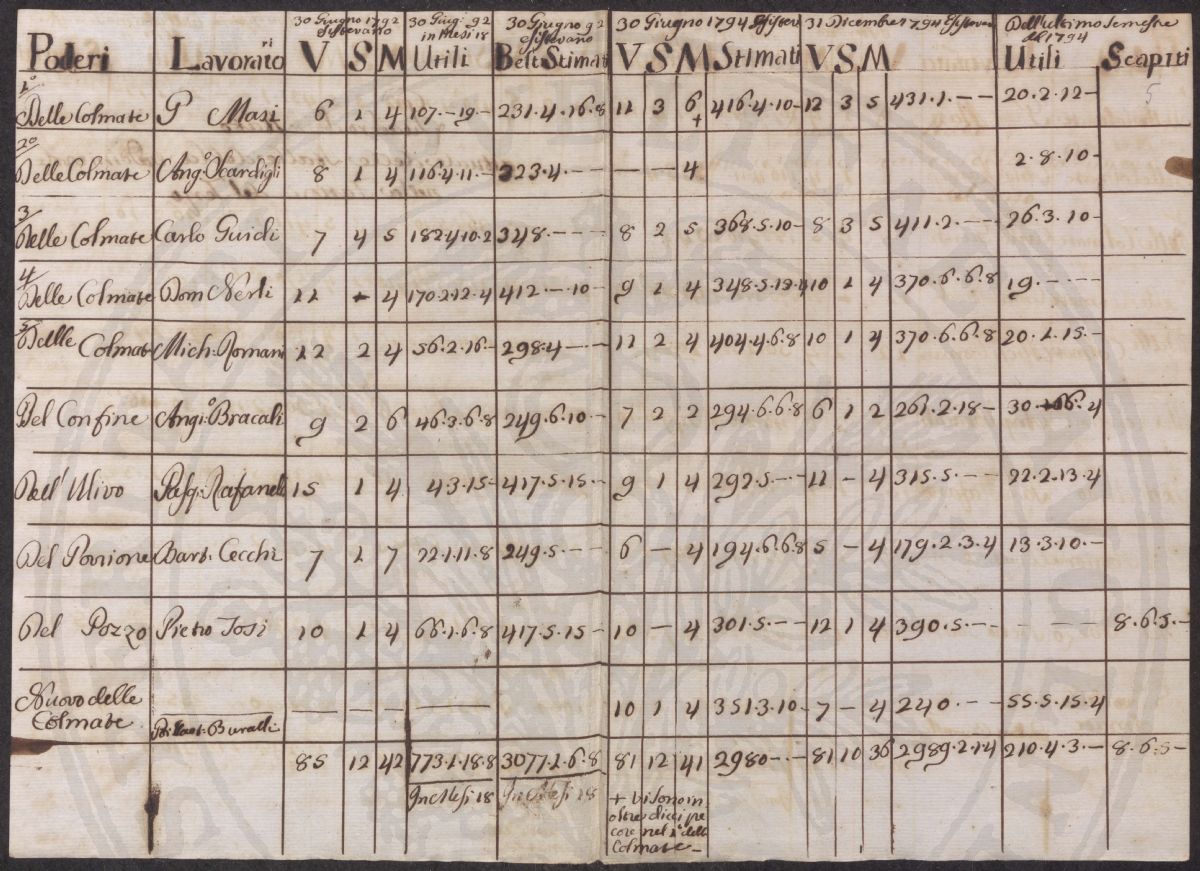 30 Giugno 1792 30 Giug: 92 30 Giugno 92 30 Giugno 1794 Esistev 31 Dicembre 1794 Esistevan Dell'ultimo Semestre
Esistevano in Mesi 18 esistevano del 1794
Poderi Lavoratori V S M Utili Best Stimati V S M Stimati V S M Utili Scapiti
1º
Delle Colmate P Masi 6 1 4 107 - 19 - 231.4.16.8 11 3 6 + 416.4.10 - 12 3 5 431.1. - - 20.2.12 - 5
2º
Delle Colmate Ang:º Scardigli 8 1 4 116.4.11 - 323.4. - - - - 4 2.8.10 -
3
Delle Colmate Carlo Guidi 7 4 5 182.4.10.2 348. - - - 8 2 5 368.5.10 - 8 3 5 411.2. - - 26.3.10 -
4
Delle Colmate Dom Nerli 11 - 4 170.2.12.4 412. - .10 - 9 1 4 348.5.19.4 10 1 4 370.6.6.8 19. - - -
5
Delle Colmate Mich: Romani 12 2 4 56.2.16 - 298.4 - - 11 2 4 404.4.6.8 10 1 4 370.6.6.8 20.1.15. -
Del Confine Angi:º Bracali 9 2 6 46.3.6.8 249.6.10. - 7 2 2 294.6.6.8 6 1 2 261.2.18 - 30 6.4
Dell'Ulivo Pasq: Rafanelli 15 1 4 43.15 - 417.5.15 - 9 1 4 292.5 - - 11 - 4 315.5. - - 22.2.13.4
Del Bart: Cecchi 7 1 7 22.1.11.8 249.5. - - 6 - 4 194.6.6.8 5 - 4 179.2.3.4 13.3.10. -
Del Pozzo Pietro Tosi 10 1 4 66.1.6.8 417.5.15 - 10 - 4 301.5. - - 12 1 4 390.5. - - - - - 8.6.5. -
Nuovo delle
Colmate Buralli - - - - - 10 1 4 351.3.10 - 7 - 4 240. - - 55.5.15.4
85 12 42 773.1.18.8 3077.1.6.8 81 12 41 2980 - . - 81 10 36 2989.2.14 210.4.3. - 8.6.5 -
In Mesi 18 In Mesi 18
+ vi sono in
oltre dieci pe
core nel 1º delle
Colmate -